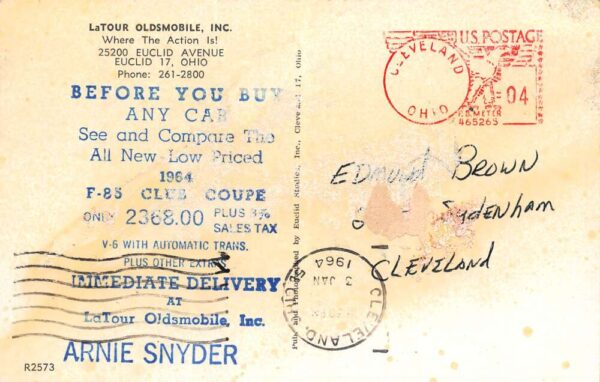 LaTOUR OLDSMOBILE, INC.
Where The Action Is!
25200 EUCLID AVENUE
EUCLID 17, OHIO
Phone: 261-2800
BEFORE YOU BUY
ANY CAR
See and Compare The
All New Low Priced
1964
F-85 CLUB COUPE
ONLY 2368.00 PLUS 3%
SALES TAX
V-6 WITH AUTOMATIC TRANS.
PLUS OTHER EXTRAS
IMMEDIATE DELIVERY
AT
LaTour Oldsmobile, Inc.
ARNIE SNYDER
R2573
Pub. and Photographed by Euclid Studios, Inc., Cleveland 17, Ohio
CLEVELAND
OHIO
U.S. POSTAGE
04
P.B. METER
465265
Edmund Brown
Sydenham
Cleveland
CLEVELAND
3
JAN
1964